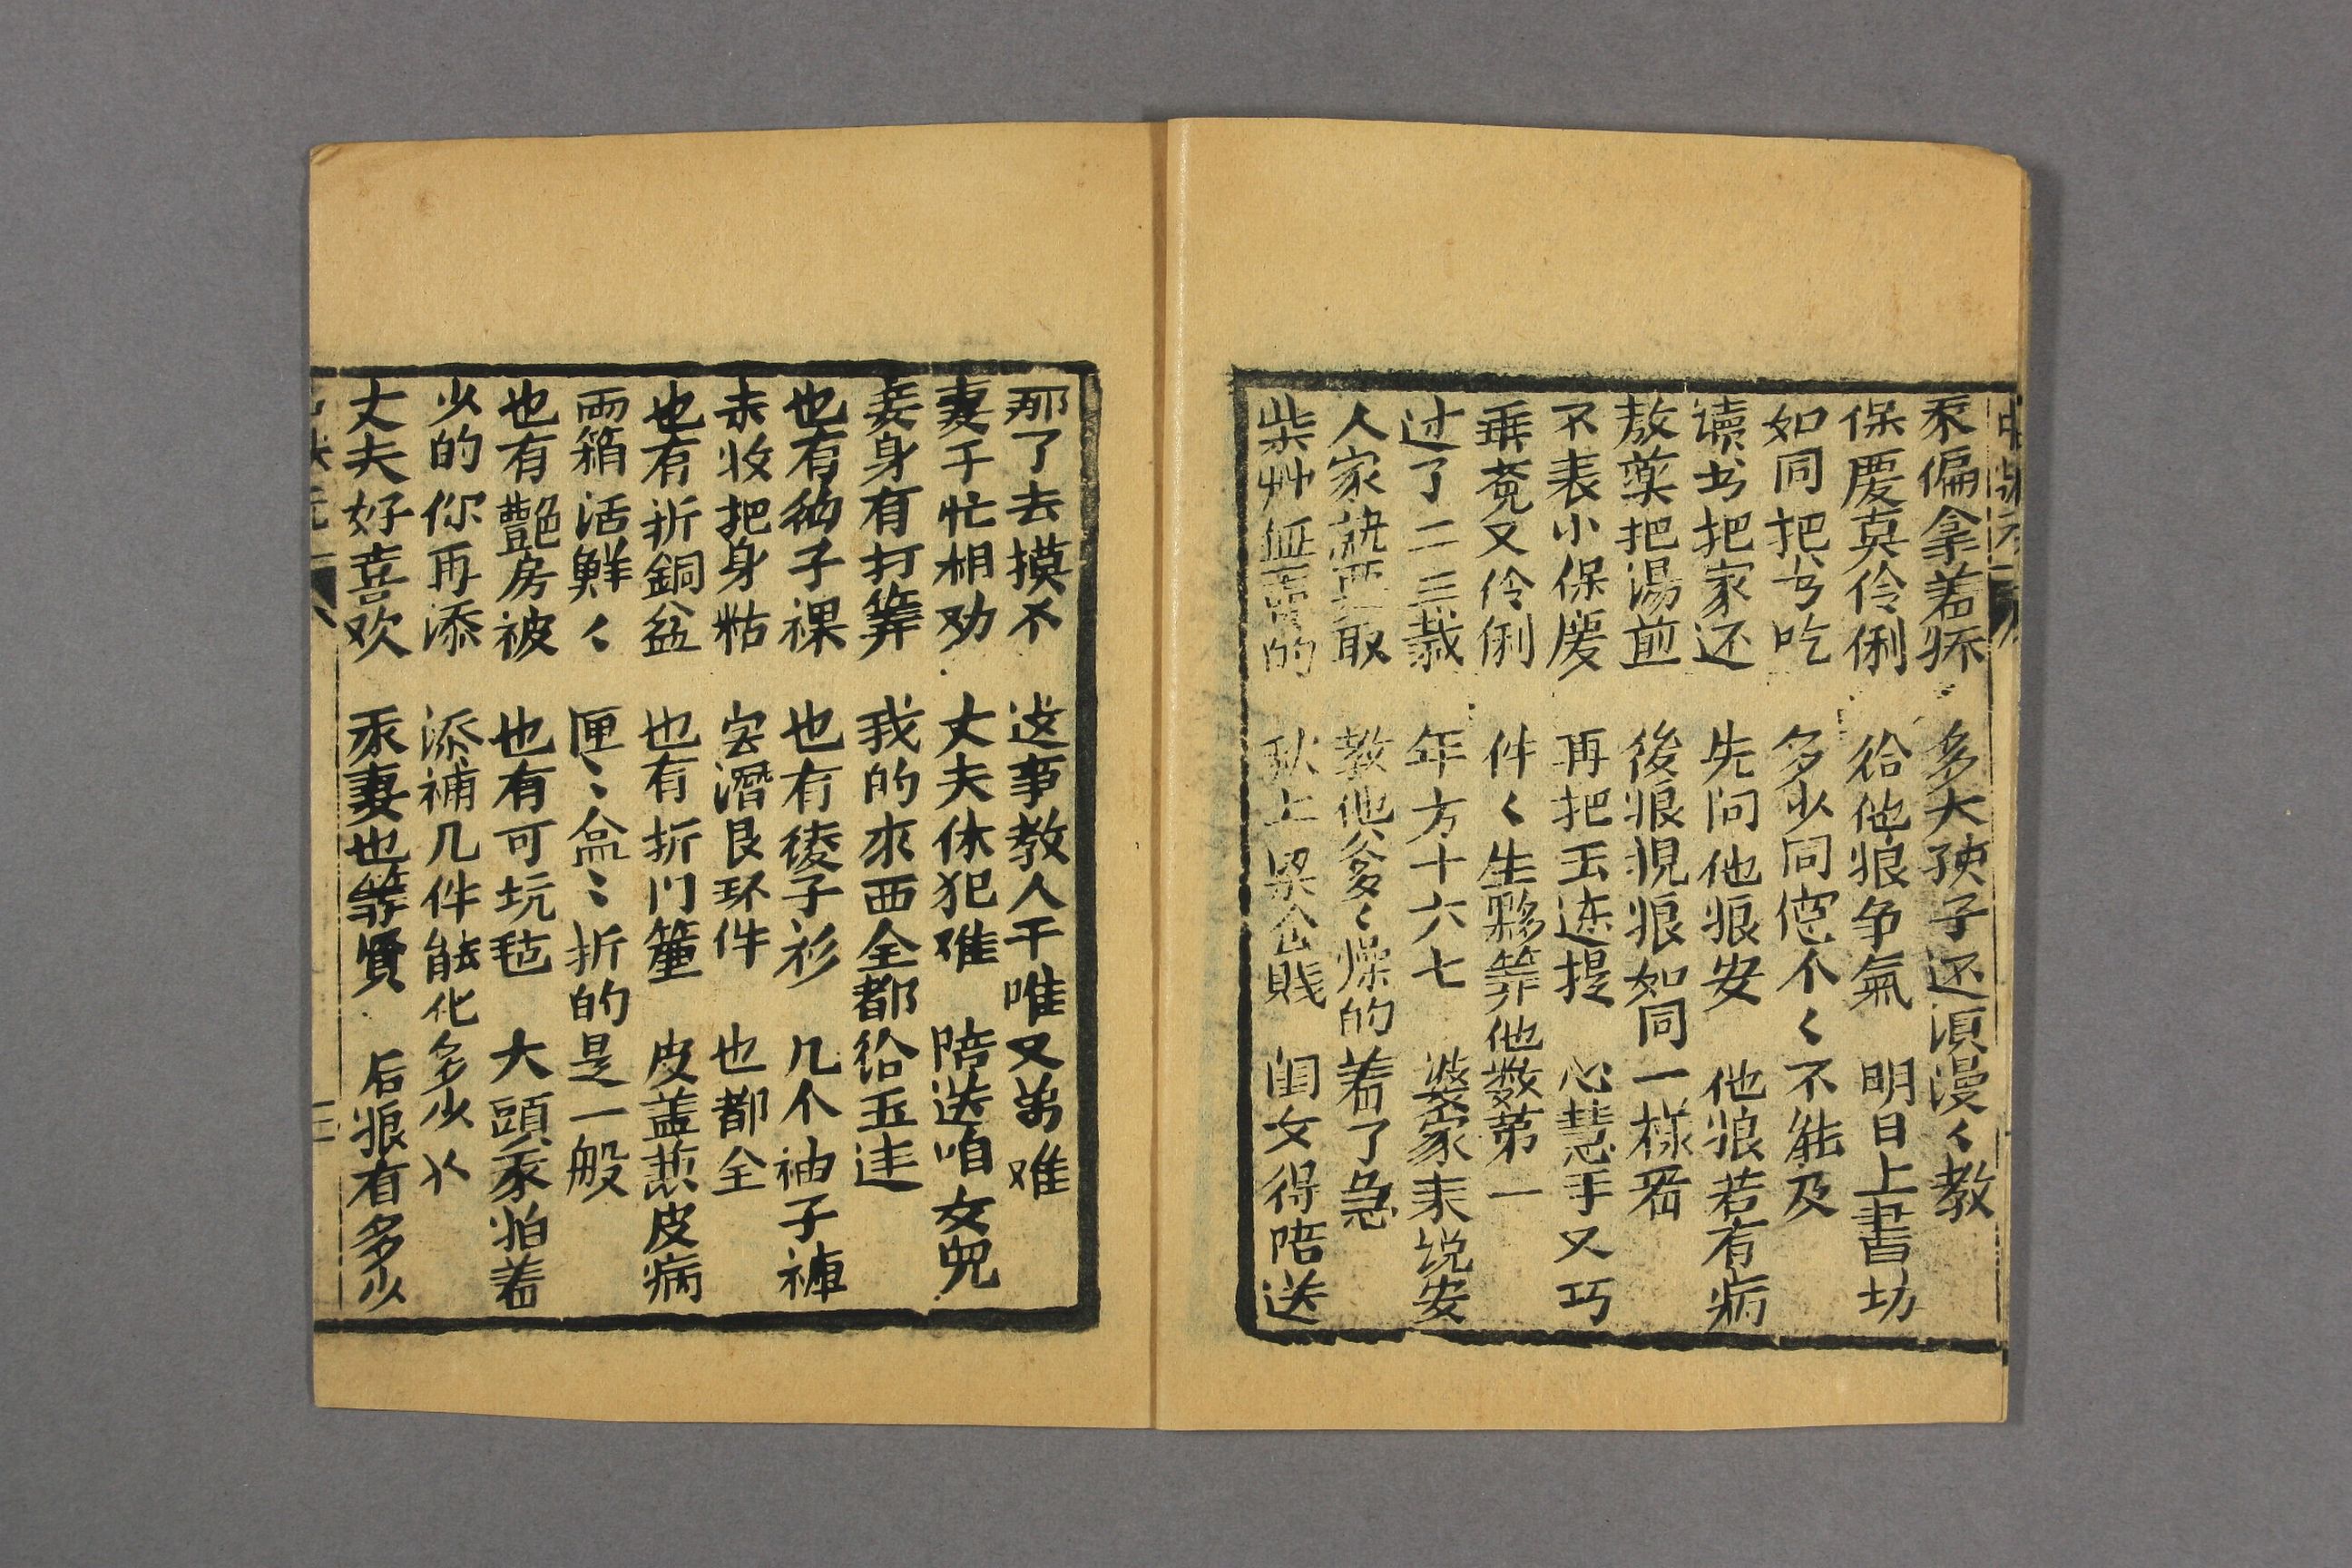 偏拿着 多大孩子还漫く教
保慶真伶俐 给他娘争氣 明日上書坊
如同把书吃 多少同窓个く不能及
读书把家还 先问他娘安 他娘若有病
熬藥把湯煎 後娘視娘如同一樣看
不表小保慶 再把玉莲提 心慧手又巧
乖竟又伶俐 件く生夥筭他数第一
过了二三载 年方十六七 婆家来说安
人家就要娶 教他爹く燥的着了急
柴艸
的 上梁 賎 闺女得陪送
那了去摸不 这事教人干唯又为难
妻子忙相劝 丈夫休犯难 陪送咱女児
妾身有打筭 我的東西全都给玉莲
也有子裸 也有綾子衫 几个袖子褲
未收把身粘 环件 也都全
也有折銅盆 也有折门 皮盖 皮病
两箱活鮮く 匣々盒々折的是一般
也有艷房被 也有可坑毡 大頭 着
少的你再添 添補几件能化多少
丈夫好喜欢 妻也筭賢 后娘有多少
三